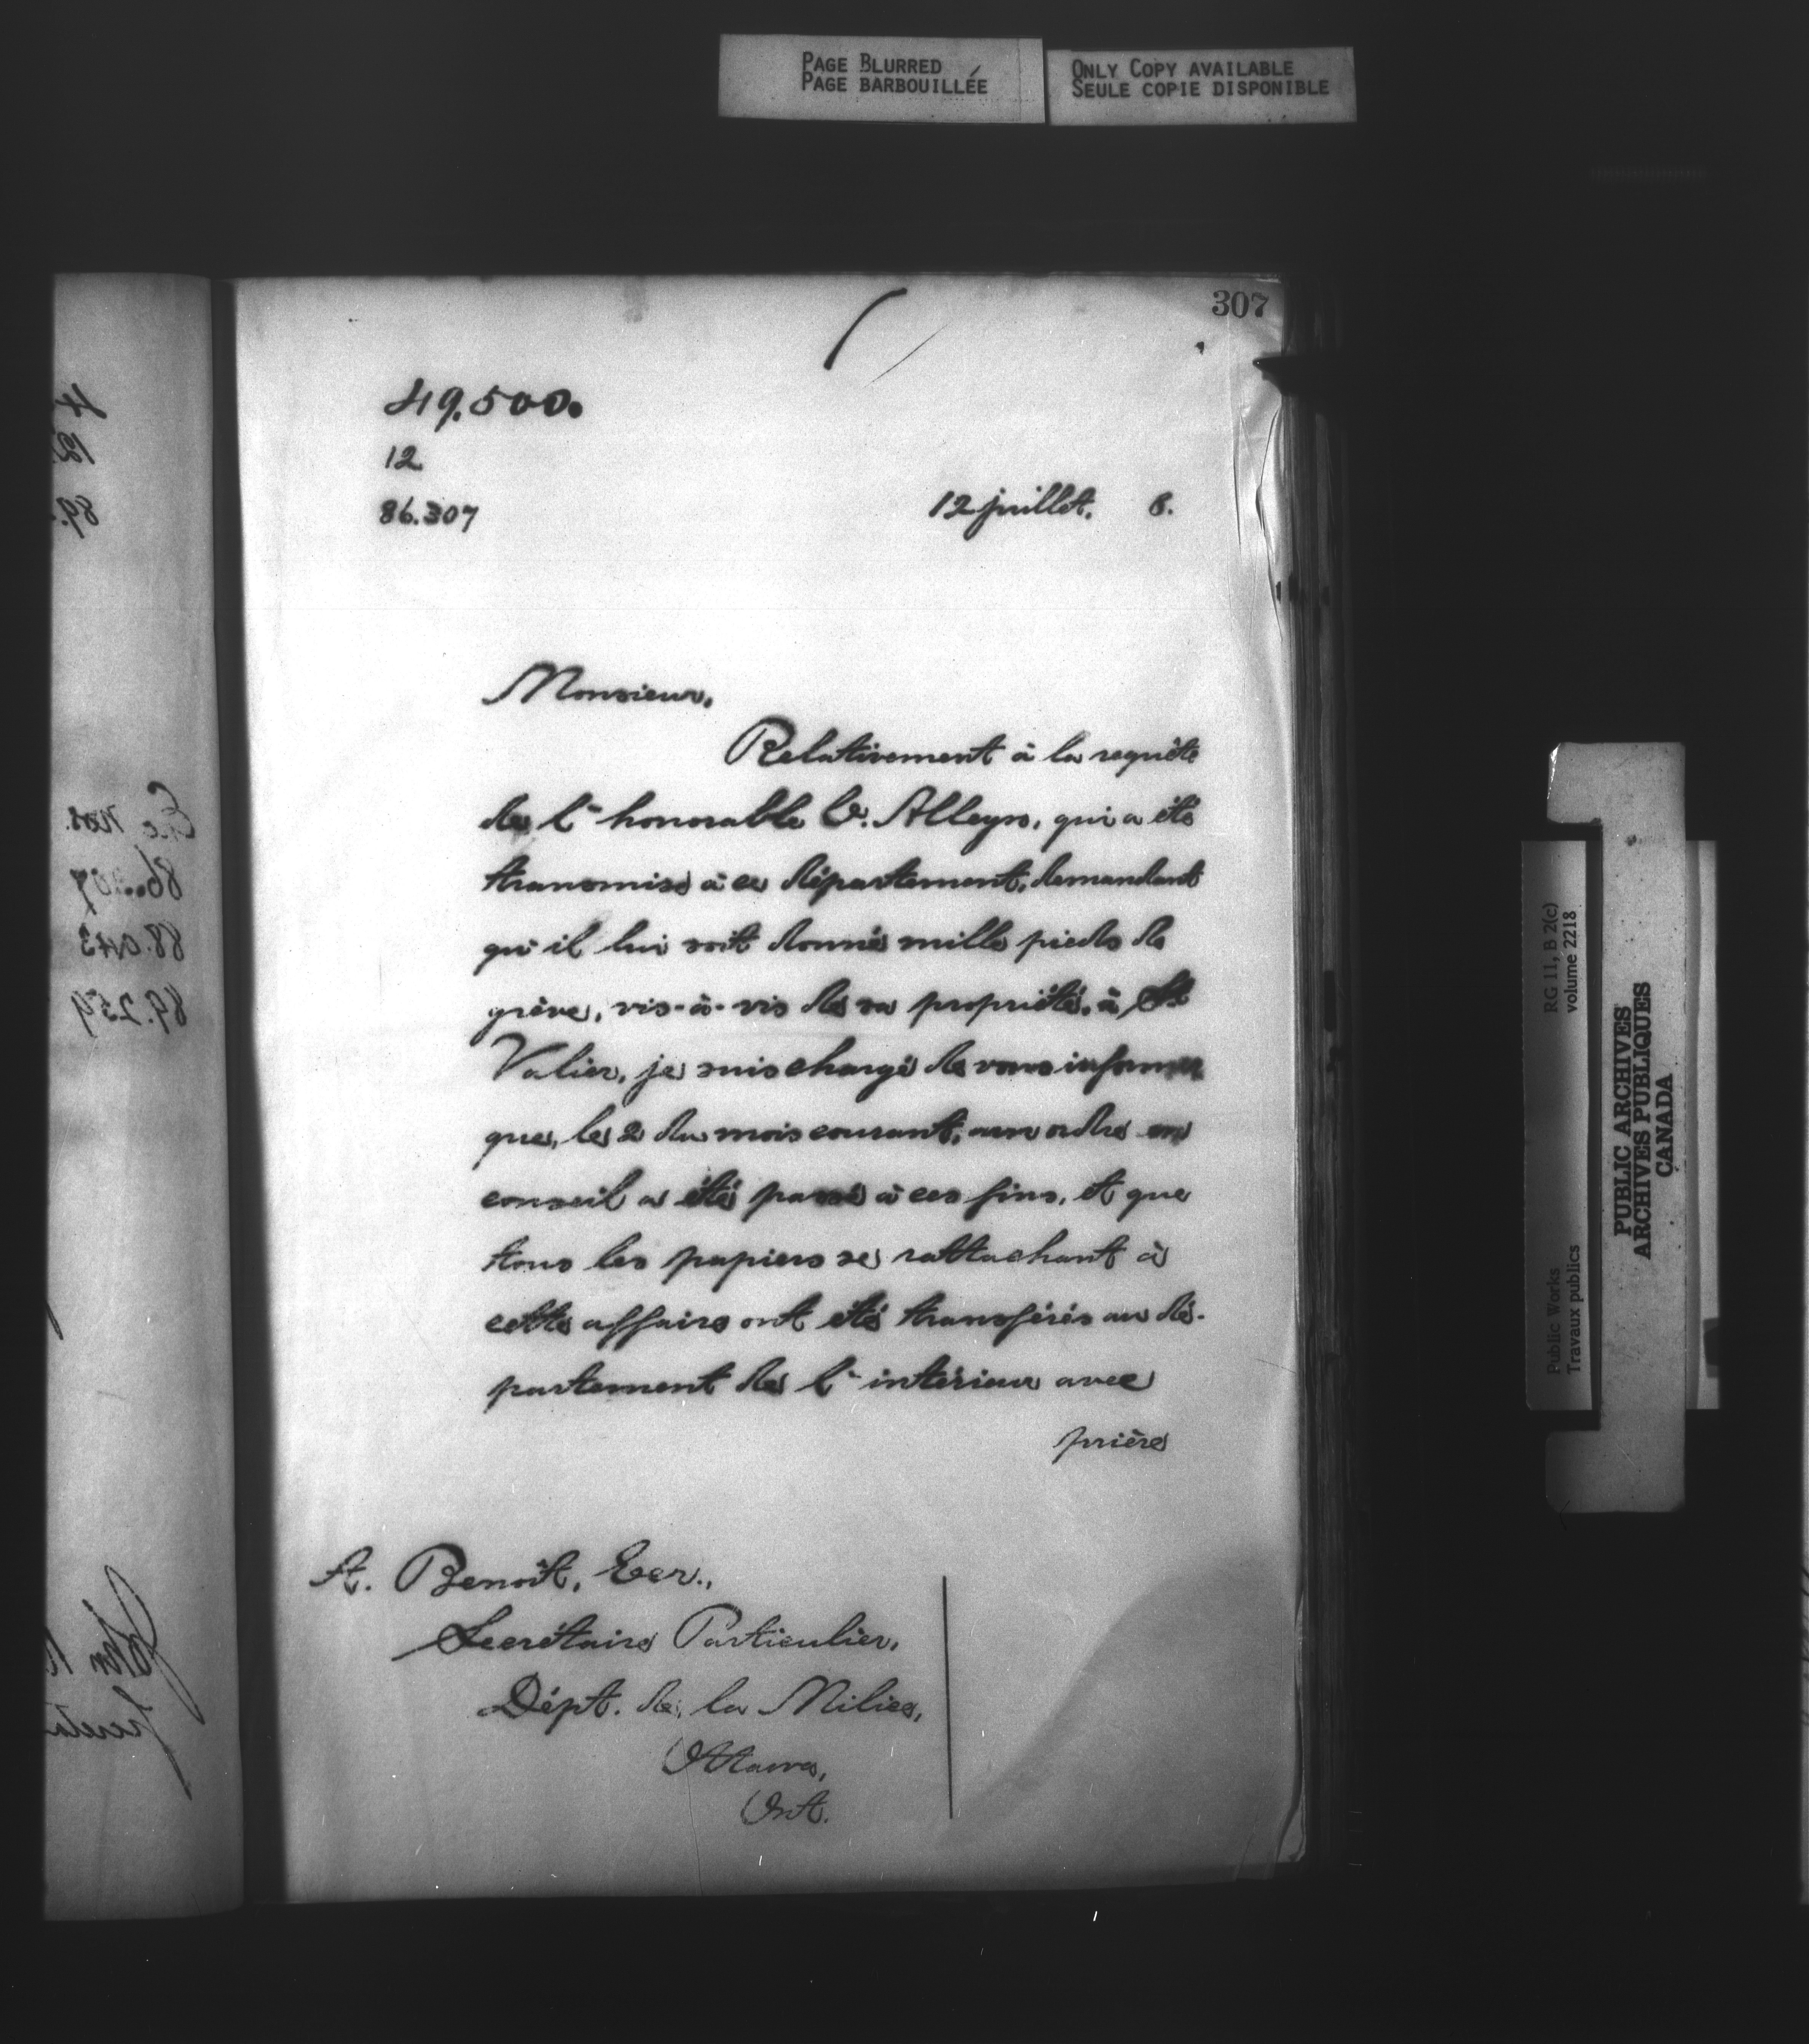 PAGE BLURRED
PAGE BARBOUILLÉE
ONLY COPY AVAILABLE
SEULE COPIE DISPONIBLE
307
49.500.
12
86.307
12 juillet. 8.
Monsieur,
Relativement à la requête
de l'honorable C. Alleyn, qui a été
transmise à ce département, demandant
qu'il lui soit donné mille pieds de
grève, vis-à-vis de sa propriété, à St
Valier, je suis chargé de vous informer
que, le 2 du mois courant, un ordre en
conseil a été passé à ces fins, et que
tous les papiers se rattachant à
cette affaire ont été transférés au dé-
partement de l'intérieur avec
prière
A. Benoit, Ecr.,
Secrétaire Particulier,
Dépt. de la Milice,
Ottawa,
Ont.
RG 11, B 2(c)
volume 2218
Public Works
Travaux publics
PUBLIC ARCHIVES
ARCHIVES PUBLIQUES
CANADA